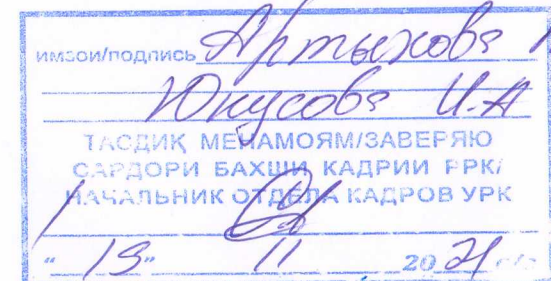 имзои/подпись Артыкова
Юнусова И.А
ТАСДИҚ МЕНАМОЯМ/ЗАВЕРЯЮ
САРДОРИ БАХШИ КАДРИИ РРК/
НАЧАЛЬНИК ОТДЕЛА КАДРОВ УРК
"19" 11 2021